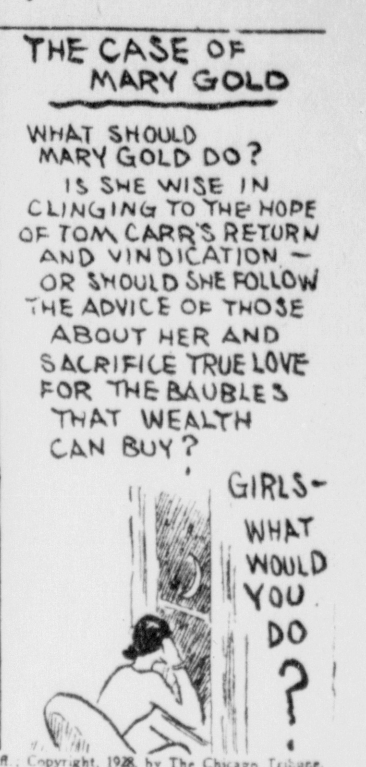 THE CASE OF
MARY GOLD
WHAT SHOULD
MARY GOLD DO?
IS SHE WISE IN
CLINGING TO THE HOPE
OF TOM CARR'S RETURN
AND VINDICATION —
OR SHOULD SHE FOLLOW
THE ADVICE OF THOSE
ABOUT HER AND
SACRIFICE TRUE LOVE
FOR THE BAUBLES
THAT WEALTH
CAN BUY?
GIRLS-
WHAT
WOULD
YOU
DO
?
Copyright, 1928, by The Chicago Tribune.